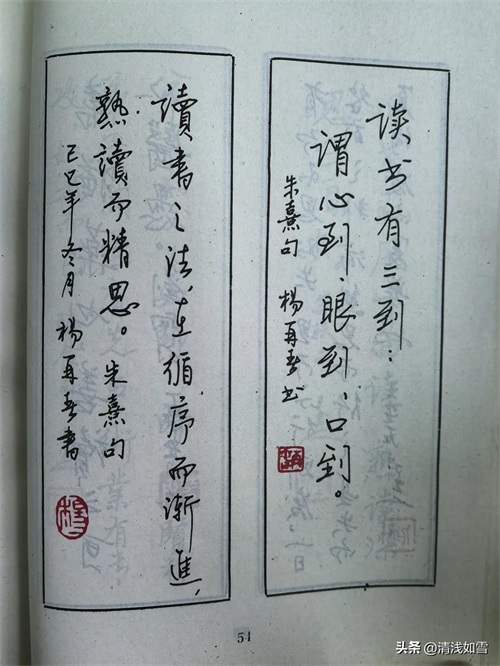 读书有三到：
谓心到、眼到、口到。
朱熹句 杨再春书
讀書之法，在循序而渐進，
熟讀而精思。朱熹句
己巳年冬月 杨再春書
54
头条 @清浅如雪